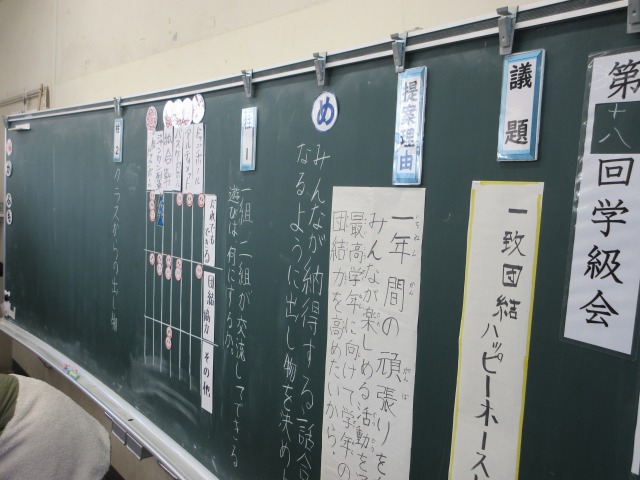 第十八回学級会
議題
一致団結ハッピーホースト
提案理由
一年間の頑張りを
みんなが楽しめる活動を
最高学年に向けて学年の
団結力を高めたいから
め
みんなが納得する話合
なるように出し物を決め
柱1
一組、二組が交流してできる
遊びは何にするか。
だれでもできる
団結協力
その他
柱2
クラスからの出し物